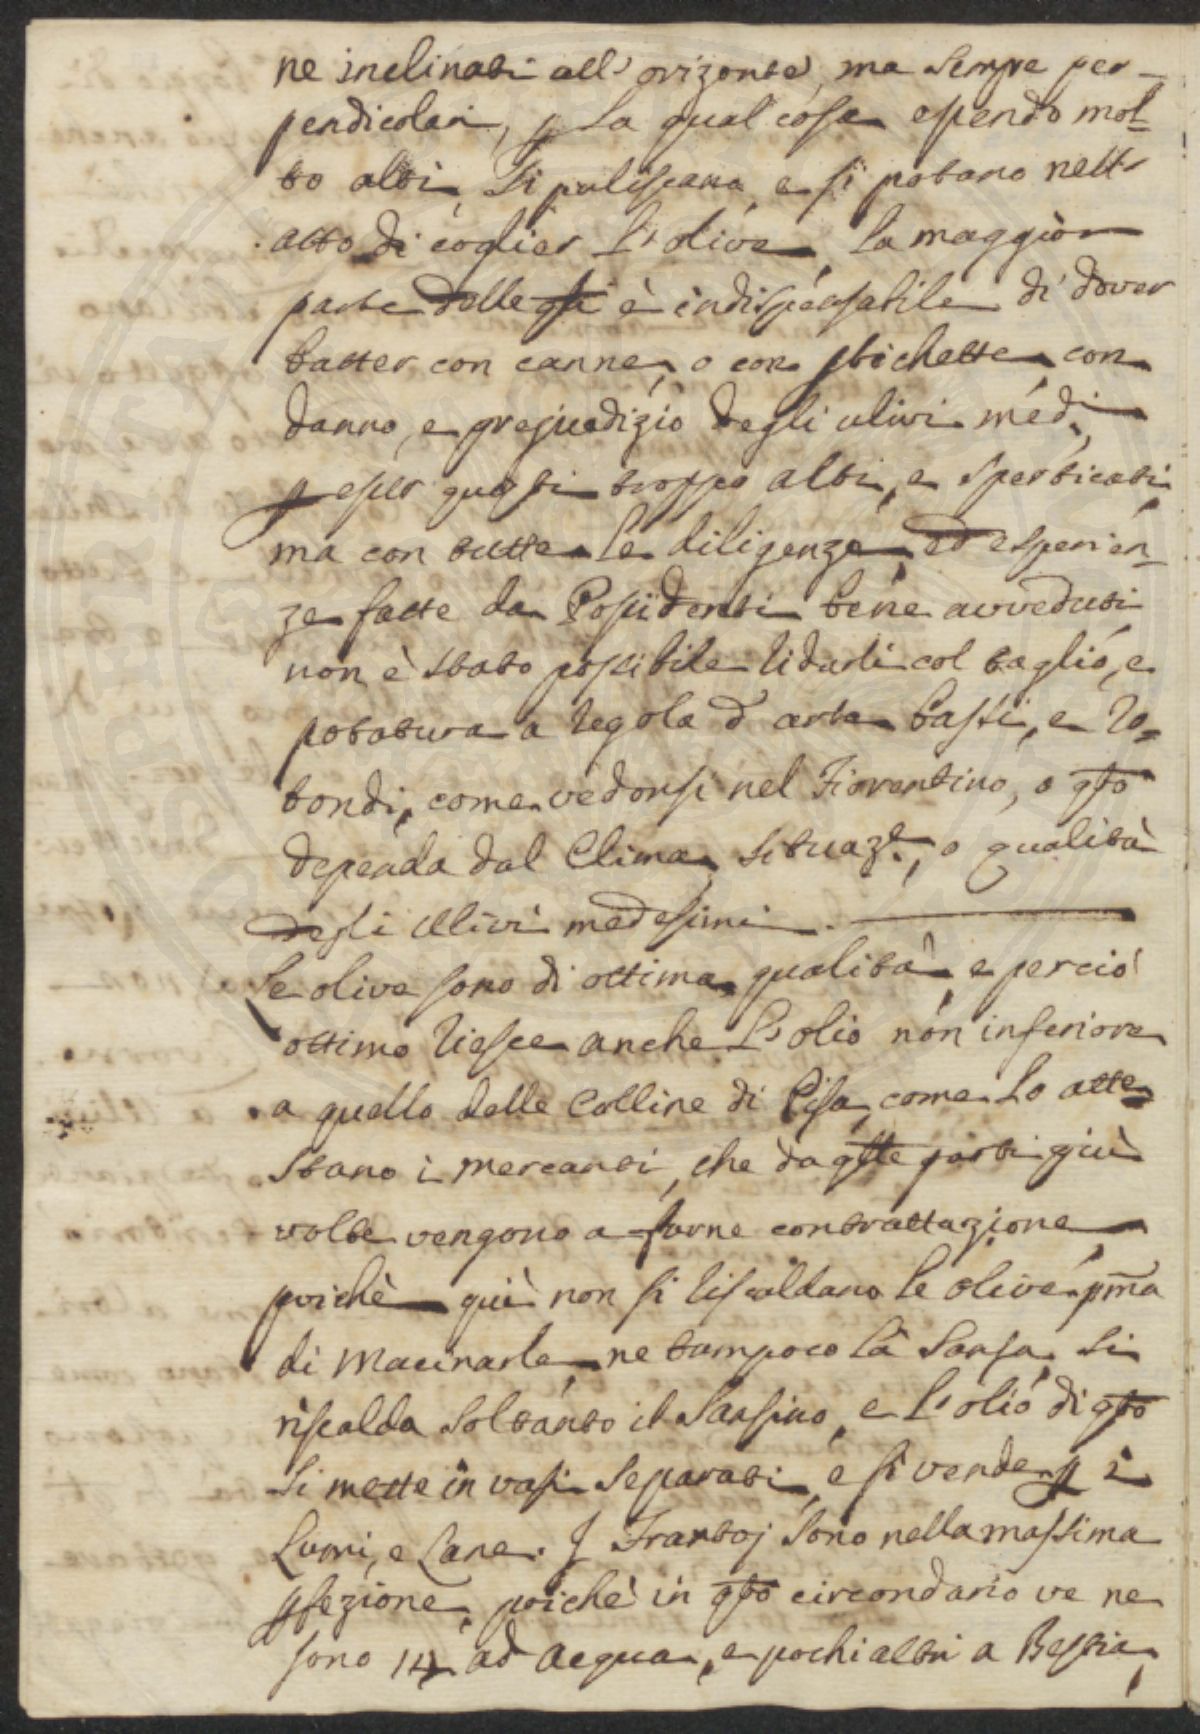 ne inclinati all'orizonte, ma sempre per-
pendicolari, p la qual cosa essendo mol-
to alti, si puliscano, e si potano nell'
atto di coglier l'olive, la maggior
parte delle qli è indispensabile di dover
batter con canne, o con stichette con
danno, e prejudizio degli ulivi med.i,
p esser questi troppo alti, e sperticati,
ma con tutte le diligenze, ed esperien-
ze fatte da Possidenti bene avveduti
non è stato possibile ridurli col taglio, e
potatura a regola d'arte bassi, e ro-
tondi, come vedonsi nel Fiorentino, o qsto
dependa dal Clima, situaz.e, o qualità
degli Ulivi medesimi.
Le olive sono di ottima qualità, e perciò
ottimo riesce anche l'olio non inferiore
a quello delle Colline di Pisa, come lo atte-
stano i mercanti, che da qste parti più
volte vengono a farne contrattazione,
poichè quì non si riscaldano le olive pma
di macinarle, ne tampoco la Sansa, si
riscalda soltanto il Sansino, e l'olio di qsto
si mette in vasi separati, e si vende p i
Lumi, e Lane. I Frantoj sono nella massima
pfezione, poichè in qsto circondario ve ne
sono 14 ad acqua, e pochi altri a Bestia,